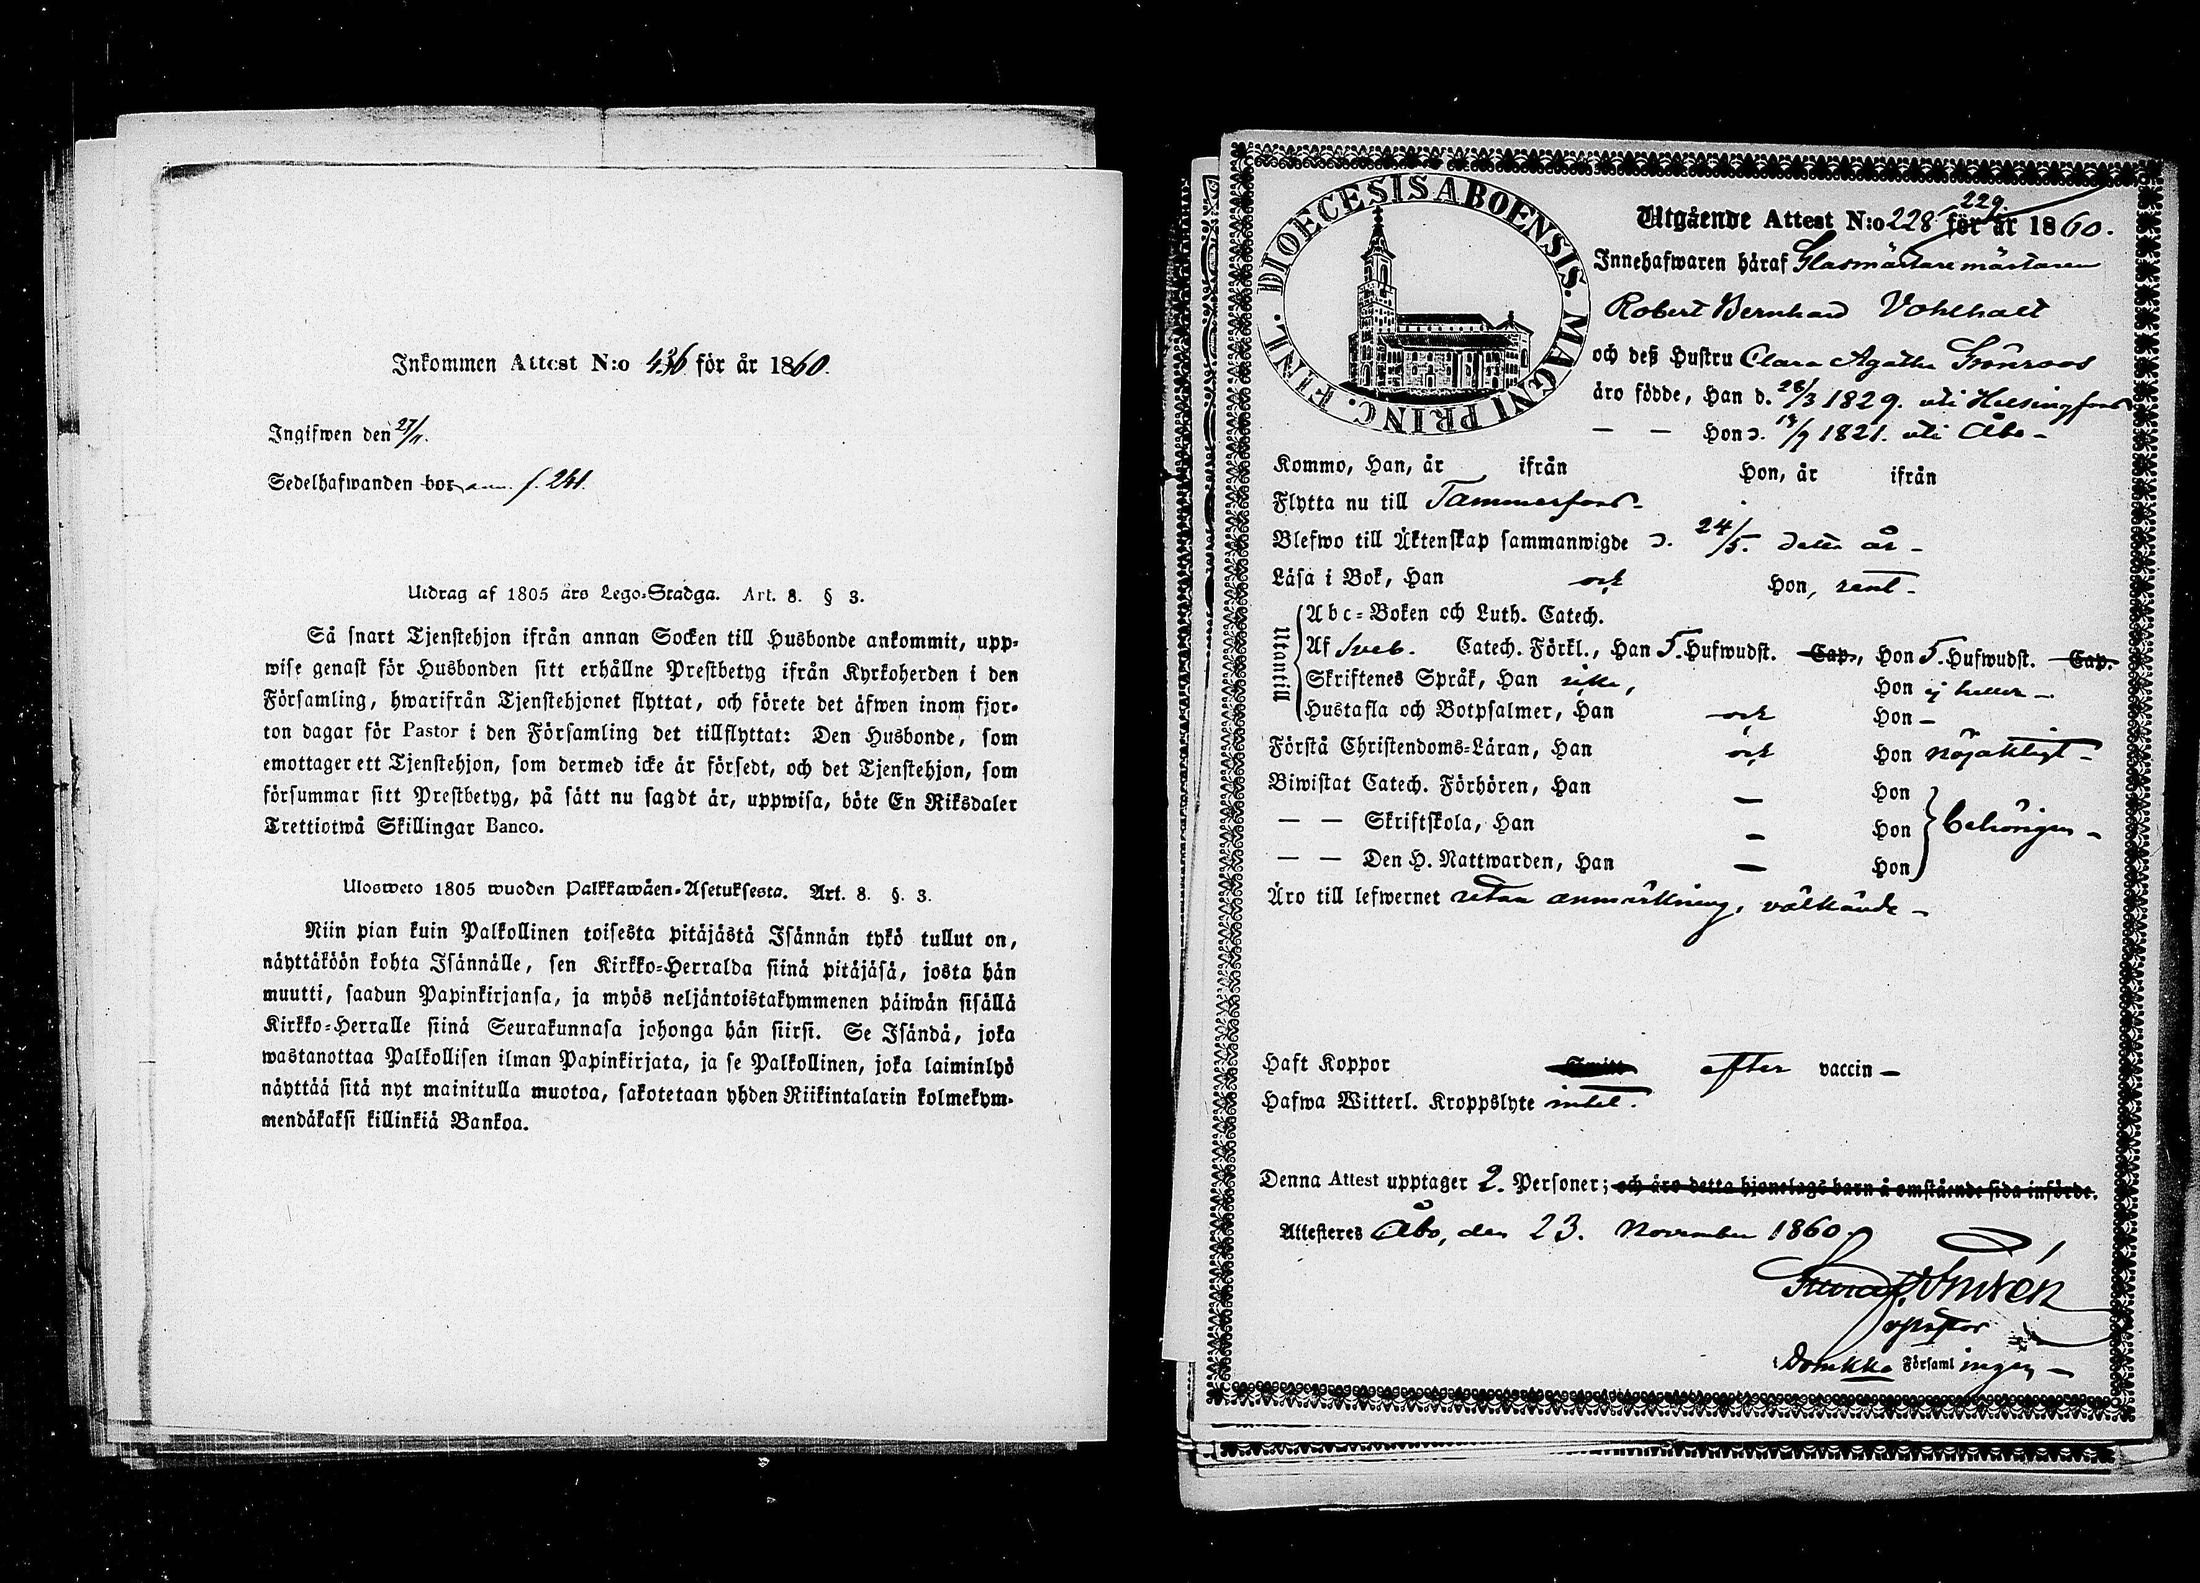 Inkommen Attest N:o 436 för år 1860.
Ingifwen den 27/11.
Sedelhafwanden bor ann. f. 241.
Utdrag af 1805 års Lego-Stadga. Art. 8. § 3.
Så snart Tjenstehjon ifrån annan Socken till Husbonde ankommit, upp-
wise genast för Husbonden sitt erhållne Prestbetyg ifrån Kyrkoherden i den
Församling, hwarifrån Tjenstehjonet flyttat, och förete det äfwen inom fjor-
ton dagar för Pastor i den Församling det tillflyttat: Den Husbonde, som
emottager ett Tjenstehjon, som dermed icke är försedt, och det Tjenstehjon, som
försummar sitt Prestbetyg, på sätt nu sagdt är, uppwisa, böte En Riksdaler
Trettiotwå Skillingar Banco.
Ulosweto 1805 wuoden Palkkawäen-Asetuksesta. Art. 8. §. 3.
Niin pian kuin Palkollinen toisesta pitäjästä Isännän tykö tullut on,
näyttäköön kohta Isännälle, sen Kirkko-Herralda siinä pitäjäsä, josta hän
muutti, saadun Papinkirjansa, ja myös neljäntoistakymmenen päiwän sisällä
Kirkko-Herralle siinä Seurakunnasa johonga hän siirsi. Se Isändä, joka
wastanottaa Palkollisen ilman Papinkirjata, ja se Palkollinen, joka laiminlyö
näyttää sitä nyt mainitulla muotoa, sakotetaan yhden Riikintalarin kolmekym-
mendäkaksi killinkiä Bankoa.
DIOECESIS ABOENSIS. MAGNI PRINC. FINL.
229.
Utgående Attest N:o 228 för år 1860.
Innehafwaren häraf Glasmästaremästaren
Robert Bernhard Vohlhalt
och deß Hustru Clara Agatha Grönroos
äro födde, Han d. 28/3 1829. uti Helsingfors
— — Hon d. 17/9 1821. uti Åbo -
Kommo, Han, år ifrån Hon, år ifrån
Flytta nu till Tammerfors -
Blefwo till Äktenskap sammanwigde d. 24/5. detta år -
Läsa i Bok, Han och Hon, rent -
Utantill
Abc-Boken och Luth. Catech.
Af Sveb. Catech. Förkl., Han 5. Hufwudst. Cap., Hon 5. Hufwudst. Cap.
Skriftenes Språk, Han icke, Hon ej heller -
Hustafla och Botpsalmer, Han och Hon -
Förstå Christendoms-Läran, Han och Hon nöjaktligt -
Biwistat Catech. Förhören, Han — Hon
— — Skriftskola, Han — Hon behörigen -
— — Den H. Nattwarden, Han — Hon
Äro till lefwernet utan anmärkning, välkände -
Haft Koppor efter vaccin —
Hafwa Witterl. Kroppslyte intet.
Denna Attest upptager 2. Personer; och äro detta hjonelags barn å omstående sida införde.
Attesteres Åbo, den 23. November 1860
v pastor
i Domkko Församlingen -